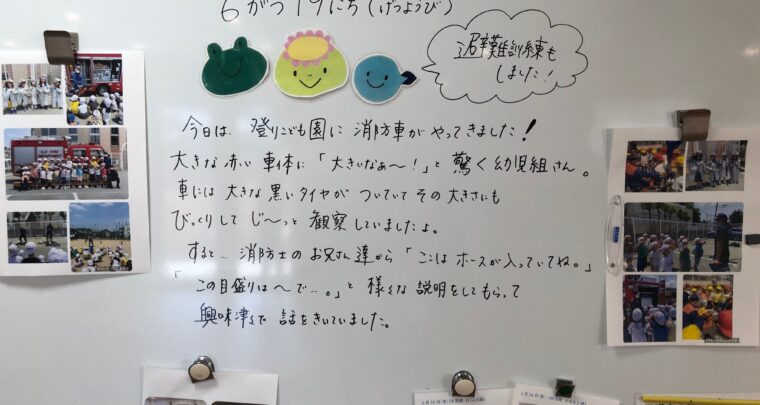 6がつ19にち(げつようび)
避難訓練も
しました!
今日は、登りこども園に消防車がやってきました!
大きな赤い車体に「大きいなぁ〜!」と驚く幼児組さん。
車には大きな黒いタイヤがついていてその大きさにも
びっくりしてじ〜っと観察していましたよ。
すると…消防士のお兄さん達から「ここはホースが入っていてね。」
「この目盛りは〜で…。」と様々な説明をしてもらって
興味津々で話をきいていました。